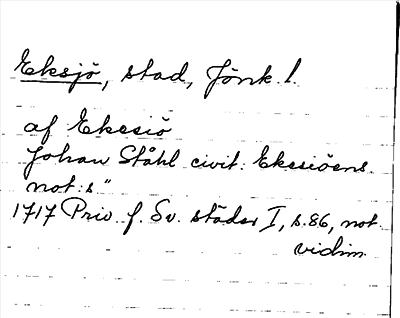 Eksjö, stad, Jönk. l.
af Ekesiö
Johan Ståhl civit. Ekesiöens.
not: s"
1717 Priv. f. Sv. städer I, s. 86, not
vidim.